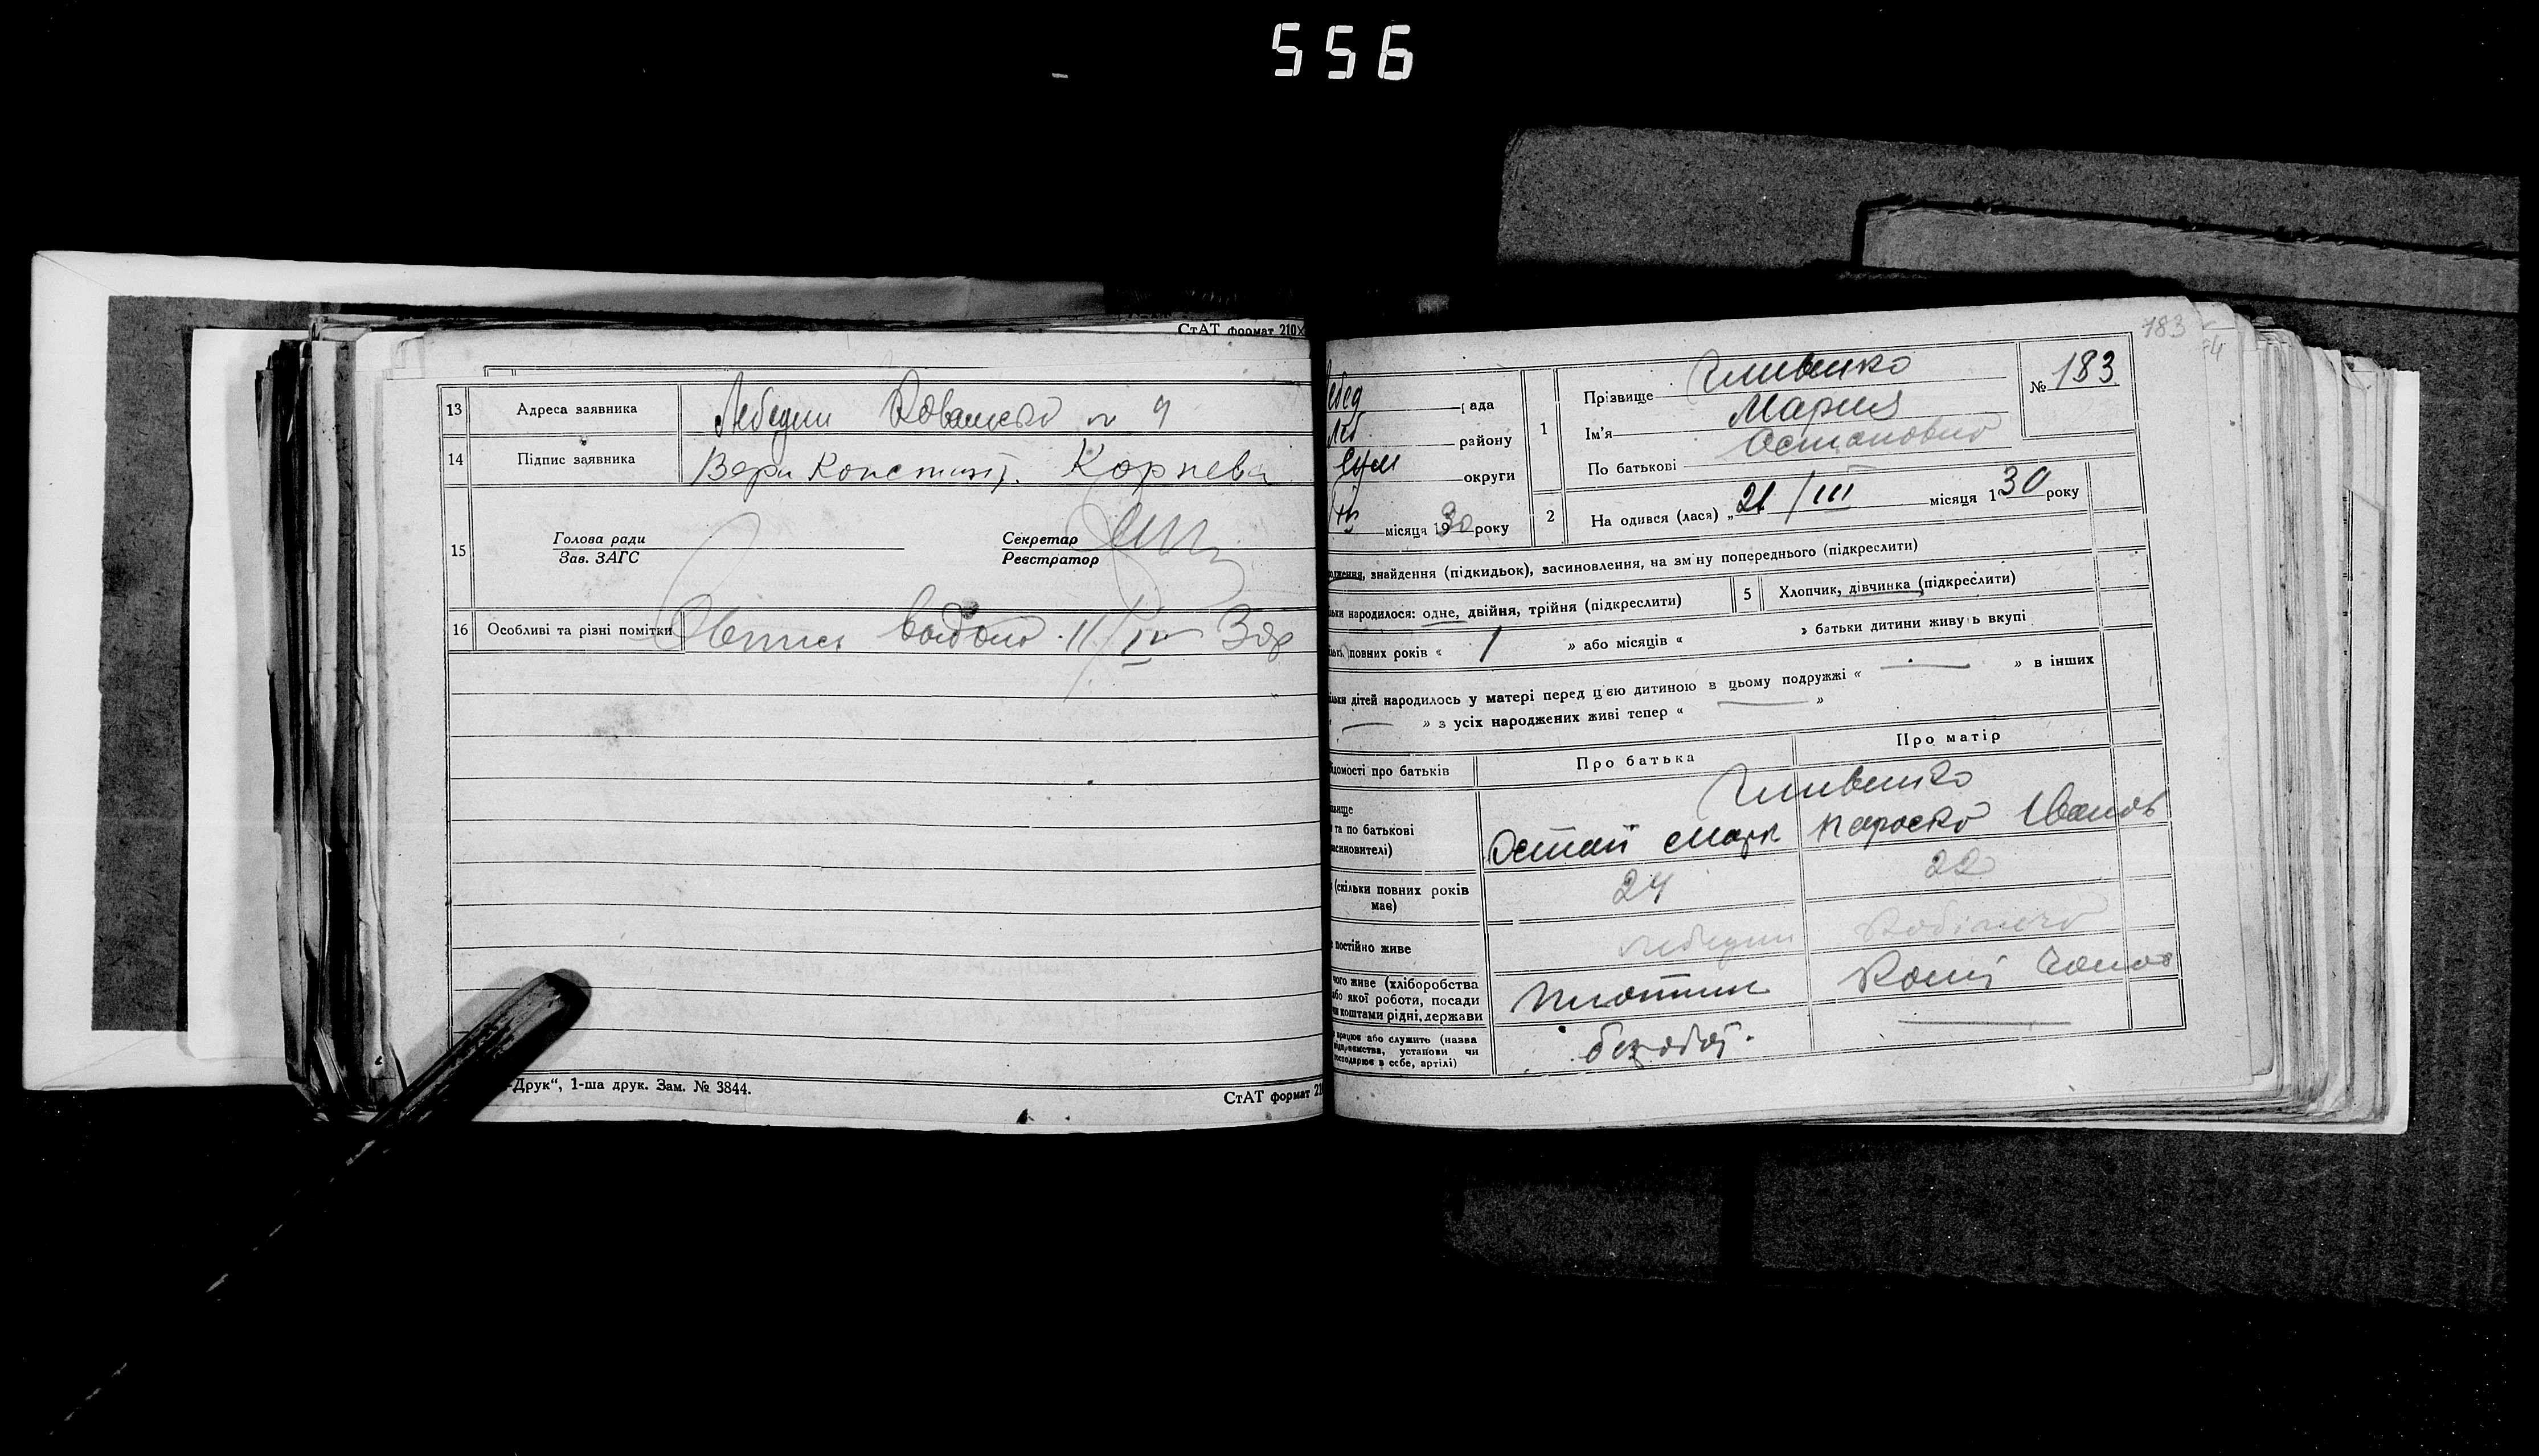 556
СтАТ формат 210×
13 Адреса заявника Лебедин
14 Підпис заявника Вера Констант. Корнева
15 Голова ради Секретар
Зав. ЗАГС Реєстратор
16 Особливі та різні помітки 11/IV 30р
-Друк“, 1-ша друк. Зам. № 3844.
СтАТ формат 21
183
Лебед рада
Леб району
Сум округи
місяця 1930 року
1 Прізвище
Ім'я Мария
По батькові Остаповна
№ 183
2 На одився (лася) „21/III місяця 1930 року
одження, знайдення (підкидьок), засиновлення, на зм ну попереднього (підкреслити)
льки народилося: одне, двійня, трійня (підкреслити) 5 Хлопчик, дівчинка (підкреслити)
повних років « 1 » або місяців « » батьки дитини живуть вкупі
льки дітей народилось у матері перед цією дитиною в цьому подружжі « — » в інших
« — » з усіх народжених живі тепер « — »
домості про батьків Про батька Про матір
звище
та по батькові Остап Марк Параско Іванов
синовителі)
(скільки повних років 24 22
має)
постійно живе Лебедин
чого живе (хліборобства
або якої роботи, посади
и коштами рідні, держави
працює або служить (назва
підприємства, установи чи
господарює в себе, артілі) безробі.